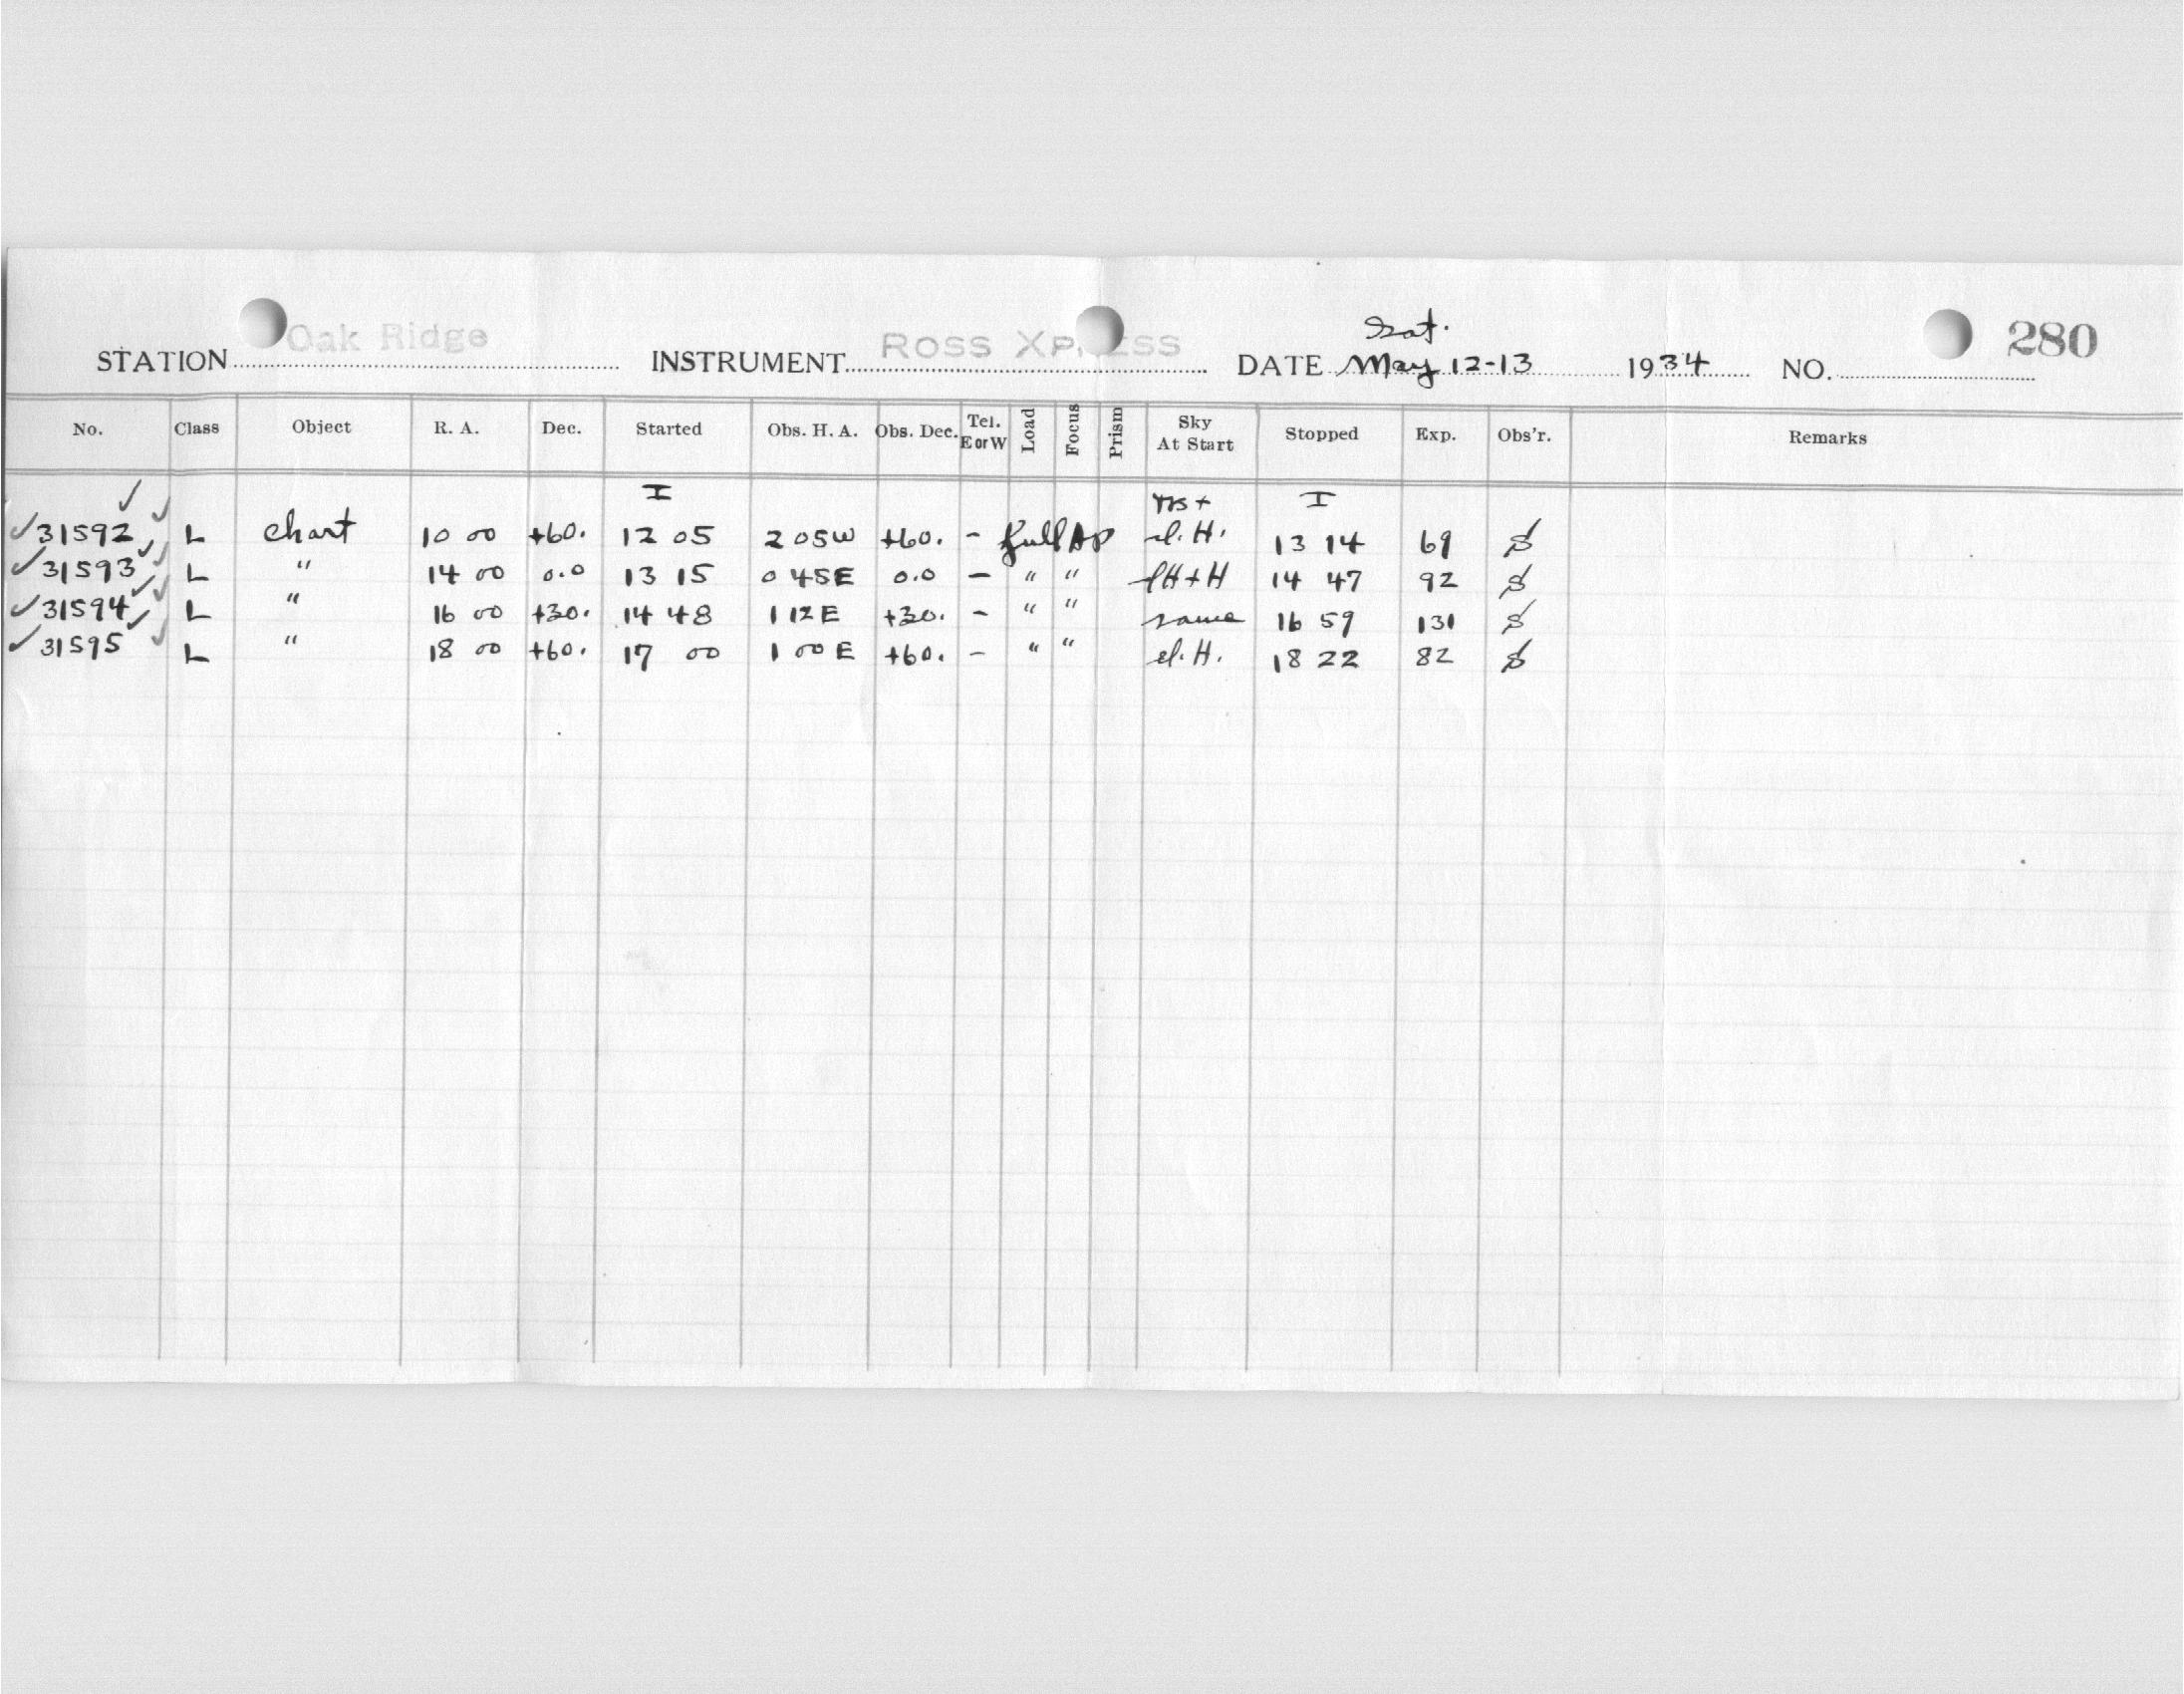 Sat.
STATION Oak Ridge INSTRUMENT Ross Xp ess DATE May 12-13 1934 NO. 280
No. Class Object R. A. Dec. Started Obs. H. A. Obs. Dec. Tel. E or W Load Focus Prism Sky At Start Stopped Exp. Obs'r. Remarks
I I
31592 L chart 10 00 +60. 12 05 2 05W +60. - full Ap H. 13 14 69
31593 L " 14 00 0.0 13 15 0 45E 0.0 - " " H+H 14 47 92
31594 L " 16 00 +30. 14 48 1 12E +30. - " " same 16 59 131
31595 L " 18 00 +60. 17 00 1 00E +60. - " " H. 18 22 82